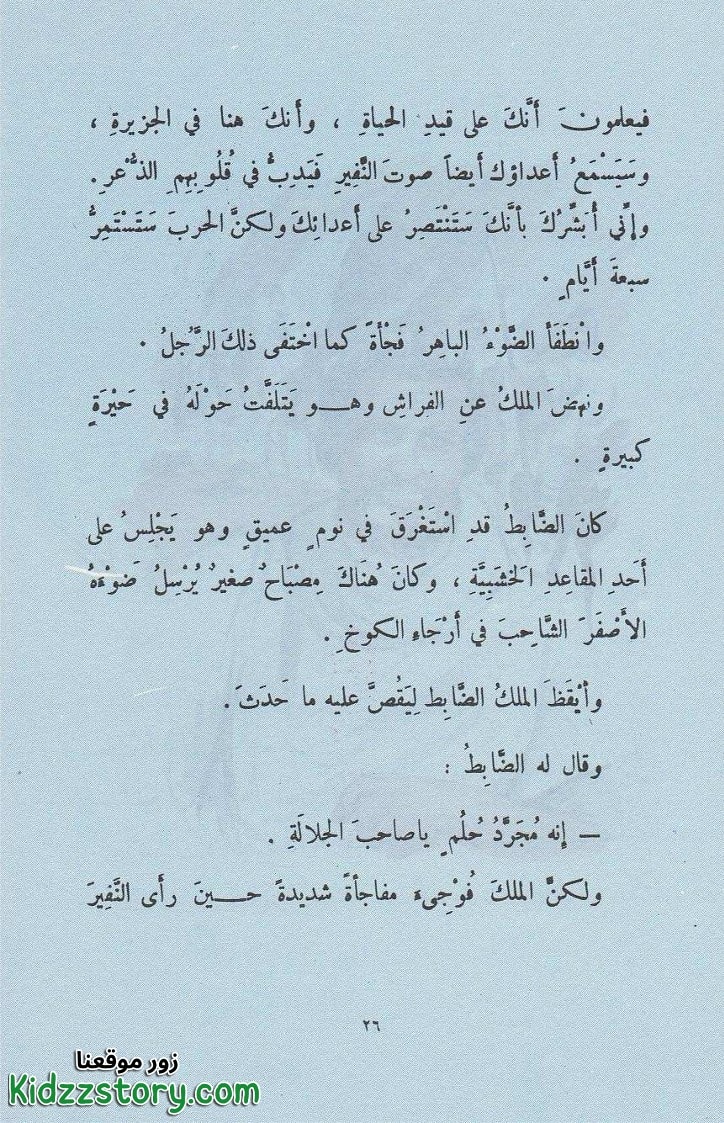 فيعلمونَ أَنَّكَ على قيدِ الحياةِ ، وأَنكَ هنا في الجزيرةِ ،
وسَيَسْمَعُ أَعداؤك أَيضاً صوتَ النَّفِيرِ فَيَدِبُّ في قُلُوبِهِمِ الذُّعرِ .
وإنِّي أُبَشِّرُكَ بأنَّكَ سَتَنْتَصِرُ على أَعدائِكَ ولكنَّ الحربَ سَتَسْتَمِرُّ
سبعةَ أَيَّامٍ .
وانْطَفَأَ الضَّوْءُ الباهِرُ فَجْأَةً كما اخْتَفَى ذلكَ الرَّجُلُ .
ونهضَ الملكُ عنِ الفراشِ وهـــو يَتَلَفَّتُ حَوْلَهُ في حَيْرَةٍ
كبيرةٍ .
كانَ الضَّابِطُ قدِ اسْتَغْرَقَ في نومٍ عميقٍ وهو يَجْلِسُ على
أَحَدِ المقاعِدِ الخشَبِيَّةِ ، وكانَ هُنَاكَ مِصْبَاحُ صغيرُ يُرْسِلُ ضَوْءَهُ
الأَصْفَرَ الشَّاحِبَ في أَرْجَاءِ الكوخِ .
وأَيْقَظَ الملكُ الضَّابِط لِيَقُصَّ عليه ما حَدَثَ .
وقال له الضَّابِطُ :
— إنه مُجَرَّدُ حُلُمٍ ياصاحبَ الجلالَةِ .
ولكنَّ الملكَ فُوْجِىءَ مفاجأةً شديدةً حـــينَ رأَى النَّفِيرَ
٢٦
زور موقعنا
Kidzzstory.com